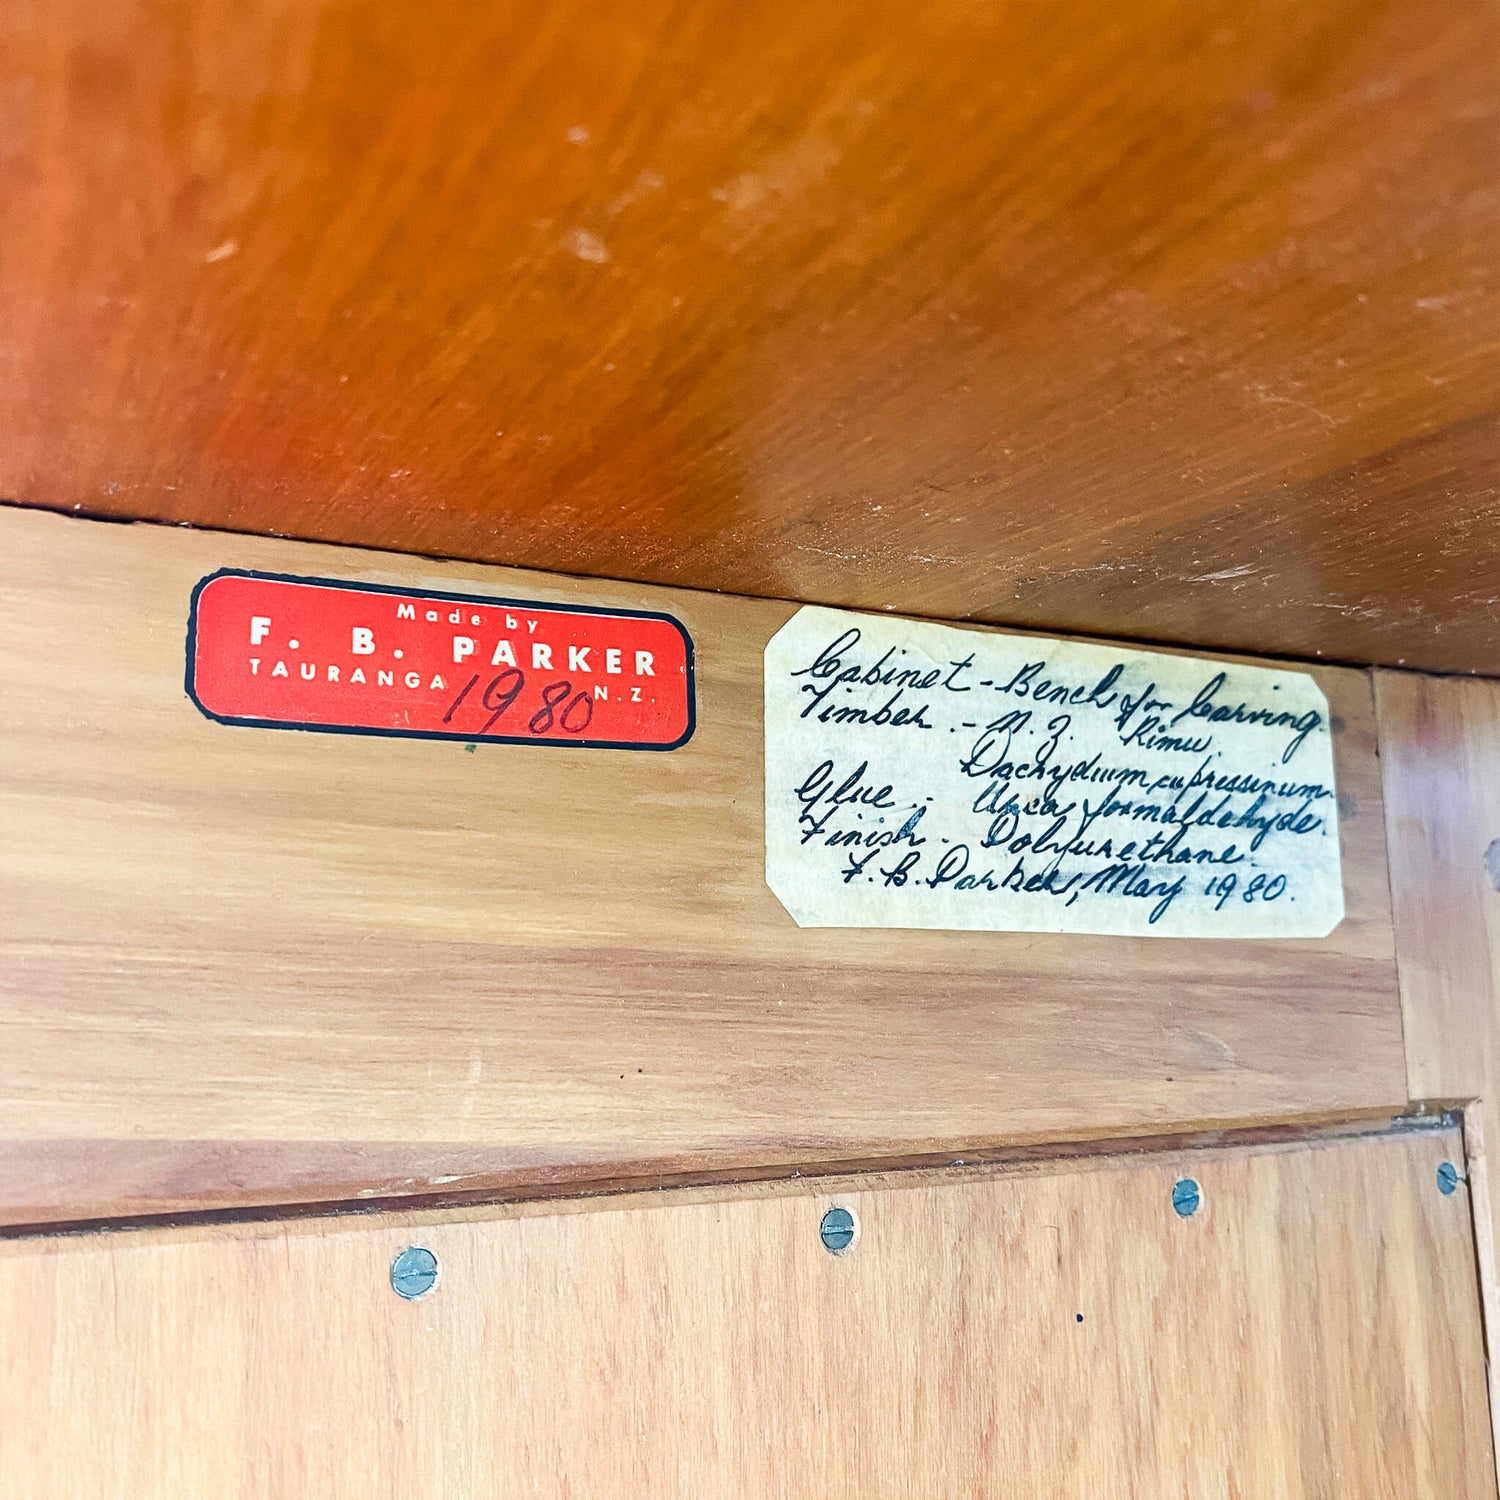 Made by
F. B. PARKER
TAURANGA N.Z.
1980
Cabinet - Bench for Carving.
Timber. - N. Z. Rimu.
Dacrydium cupressinum.
Glue. - Urea formaldehyde.
Finish - Polyurethane.
F. B. Parker, May 1980.